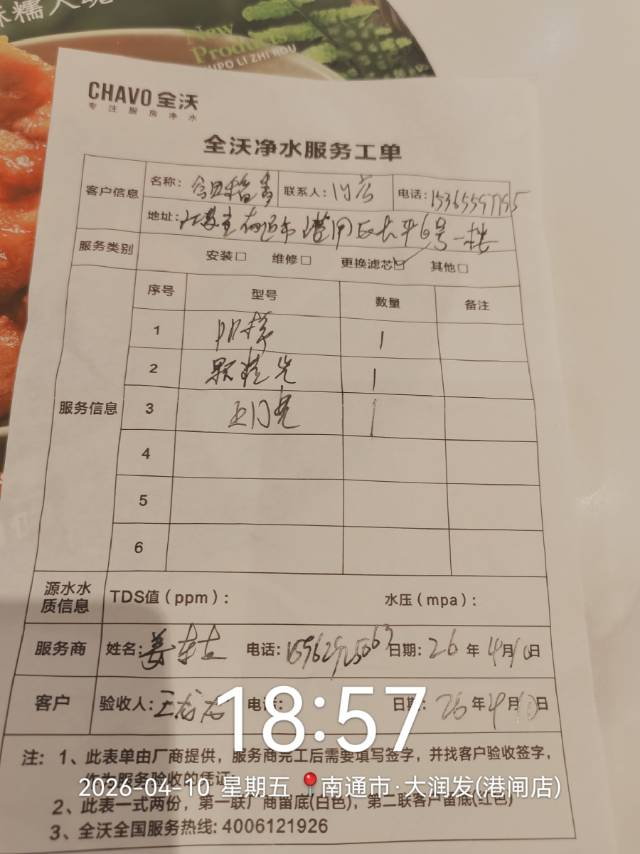 New
Products
UPO LI ZHI ROU
CHAVO 全沃
专注厨房净水
全沃净水服务工单
客户信息 名称: 联系人: 门店 电话:
地址: 江苏省南通市 6号一楼
服务类别 安装□ 维修□ 更换滤芯☑ 其他□
服务信息 序号 型号 数量 备注
1 PP棉 1
2 颗粒炭 1
3 1
4
5
6
源水水质信息 TDS值(ppm): 水压(mpa):
服务商 姓名: 电话: 15962925063 日期: 26年4月10日
客户 验收人: 电话: 日期: 26年4月10日
18:57
注: 1、此表单由厂商提供，服务商完工后需要填写签字，并找客户验收签字，
作为服务验收的凭证
2026-04-10 星期五 📍南通市·大润发(港闸店)
2、此表一式两份，第一联厂商留底(白色)，第二联客户留底(红色)
3、全沃全国服务热线: 4006121926